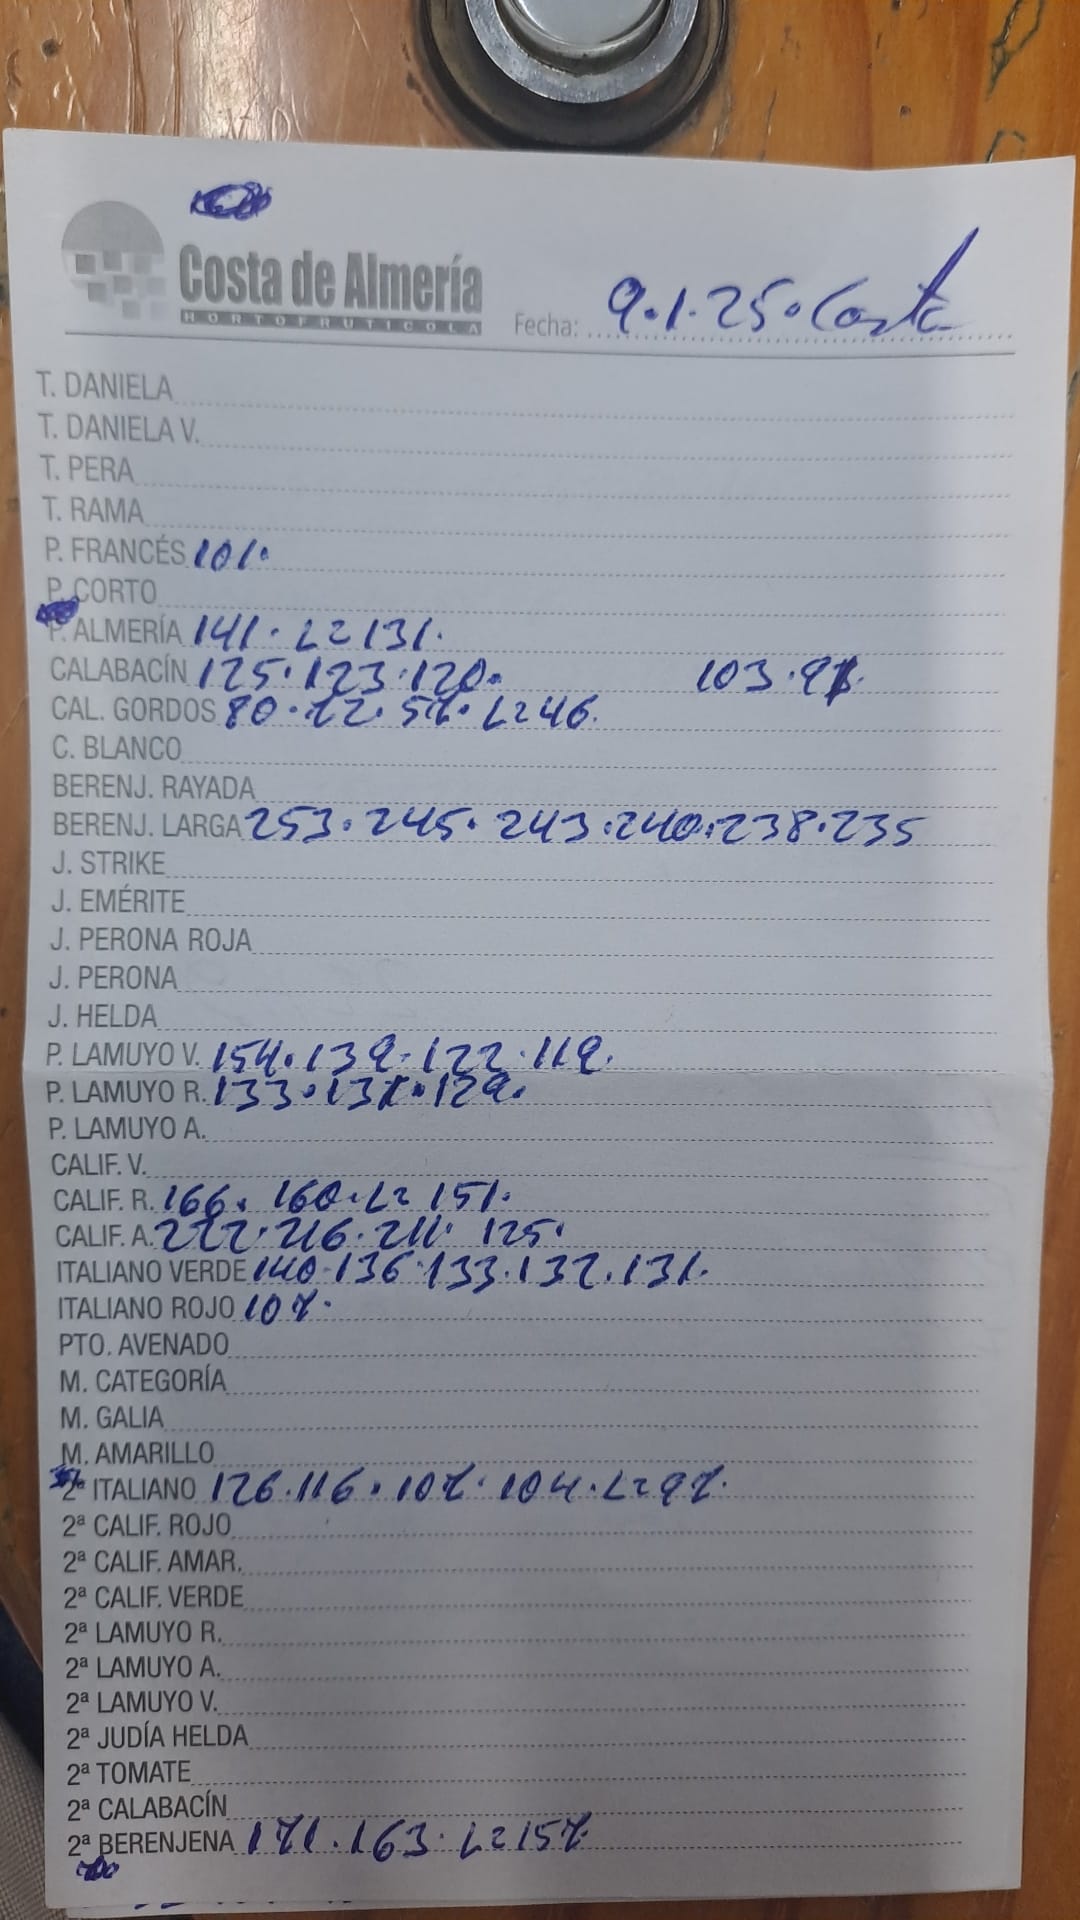 Costa de Almería
HORTOFRUTICOLA
Fecha: 9.1.25. Costa
T. DANIELA
T. DANIELA V.
T. PERA
T. RAMA
P. FRANCÉS 101.
P. CORTO
P. ALMERÍA 141. L2 131.
CALABACÍN 125.123.120. 103.
CAL. GORDOS 80.72.57. L2 46.
C. BLANCO
BERENJ. RAYADA
BERENJ. LARGA 253.245.243.240.238.235
J. STRIKE
J. EMÉRITE
J. PERONA ROJA
J. PERONA
J. HELDA
P. LAMUYO V. 154.139.122.119.
P. LAMUYO R. 133. 129.
P. LAMUYO A.
CALIF. V.
CALIF. R. 166. 160. L2 151.
CALIF. A. 222.216.211. 125.
ITALIANO VERDE 140.136.133.132.131.
ITALIANO ROJO 107.
PTO. AVENADO
M. CATEGORÍA
M. GALIA
M. AMARILLO
2ª ITALIANO 126.116.107.104. L2 97.
2ª CALIF. ROJO
2ª CALIF. AMAR.
2ª CALIF. VERDE
2ª LAMUYO R.
2ª LAMUYO A.
2ª LAMUYO V.
2ª JUDÍA HELDA
2ª TOMATE
2ª CALABACÍN
2ª BERENJENA 171.163. L2 157